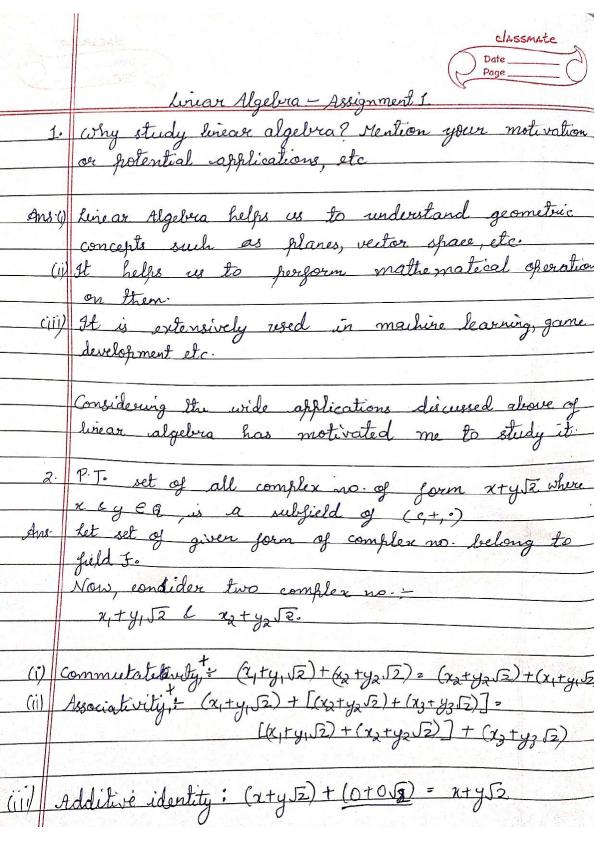 classmate
Date
Page
Linear Algebra – Assignment 1
1. Why study linear algebra? Mention your motivation
or potential applications, etc
Ans:(i) Linear Algebra helps us to understand geometric
concepts such as planes, vector space, etc.
(ii) It helps us to perform mathematical operation
on them.
(iii) It is extensively used in machine learning, game
development etc.
Considering the wide applications discussed above of
linear algebra has motivated me to study it.
2. P.T. set of all complex no. of form x+y√2 where
x & y ∈ Q, is a subfield of (C,+,·)
Ans. Let set of given form of complex no. belong to
field F.
Now, condider two complex no.:-
x₁+y₁√2 & x₂+y₂√2.
(i) Commutativity⁺:- (x₁+y₁√2)+(x₂+y₂√2) = (x₂+y₂√2)+(x₁+y₁√2
(ii) Associativity⁺:- (x₁+y₁√2) + [(x₂+y₂√2)+(x₃+y₃√2)] =
[(x₁+y₁√2)+(x₂+y₂√2)] + (x₃+y₃√2)
(iii) Additive identity: (x+y√2) + (0+0√2) = x+y√2